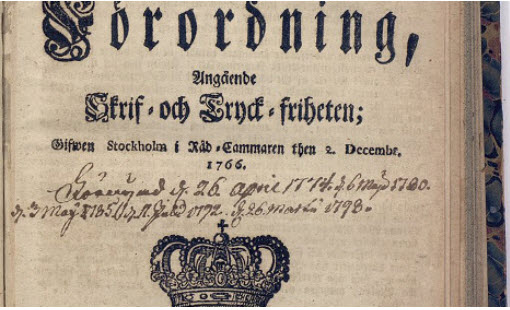 Förordning,
Angående
Skrif-och Tryck-friheten;
Gifwen Stockholm i Råd-Cammaren then 2. Decembr.
1766.
d. 26 april 1774. d. 6 Maji 1780.
d. 3 May 1785. d. 11 Julii 1792. d. 26 Martii 1798.